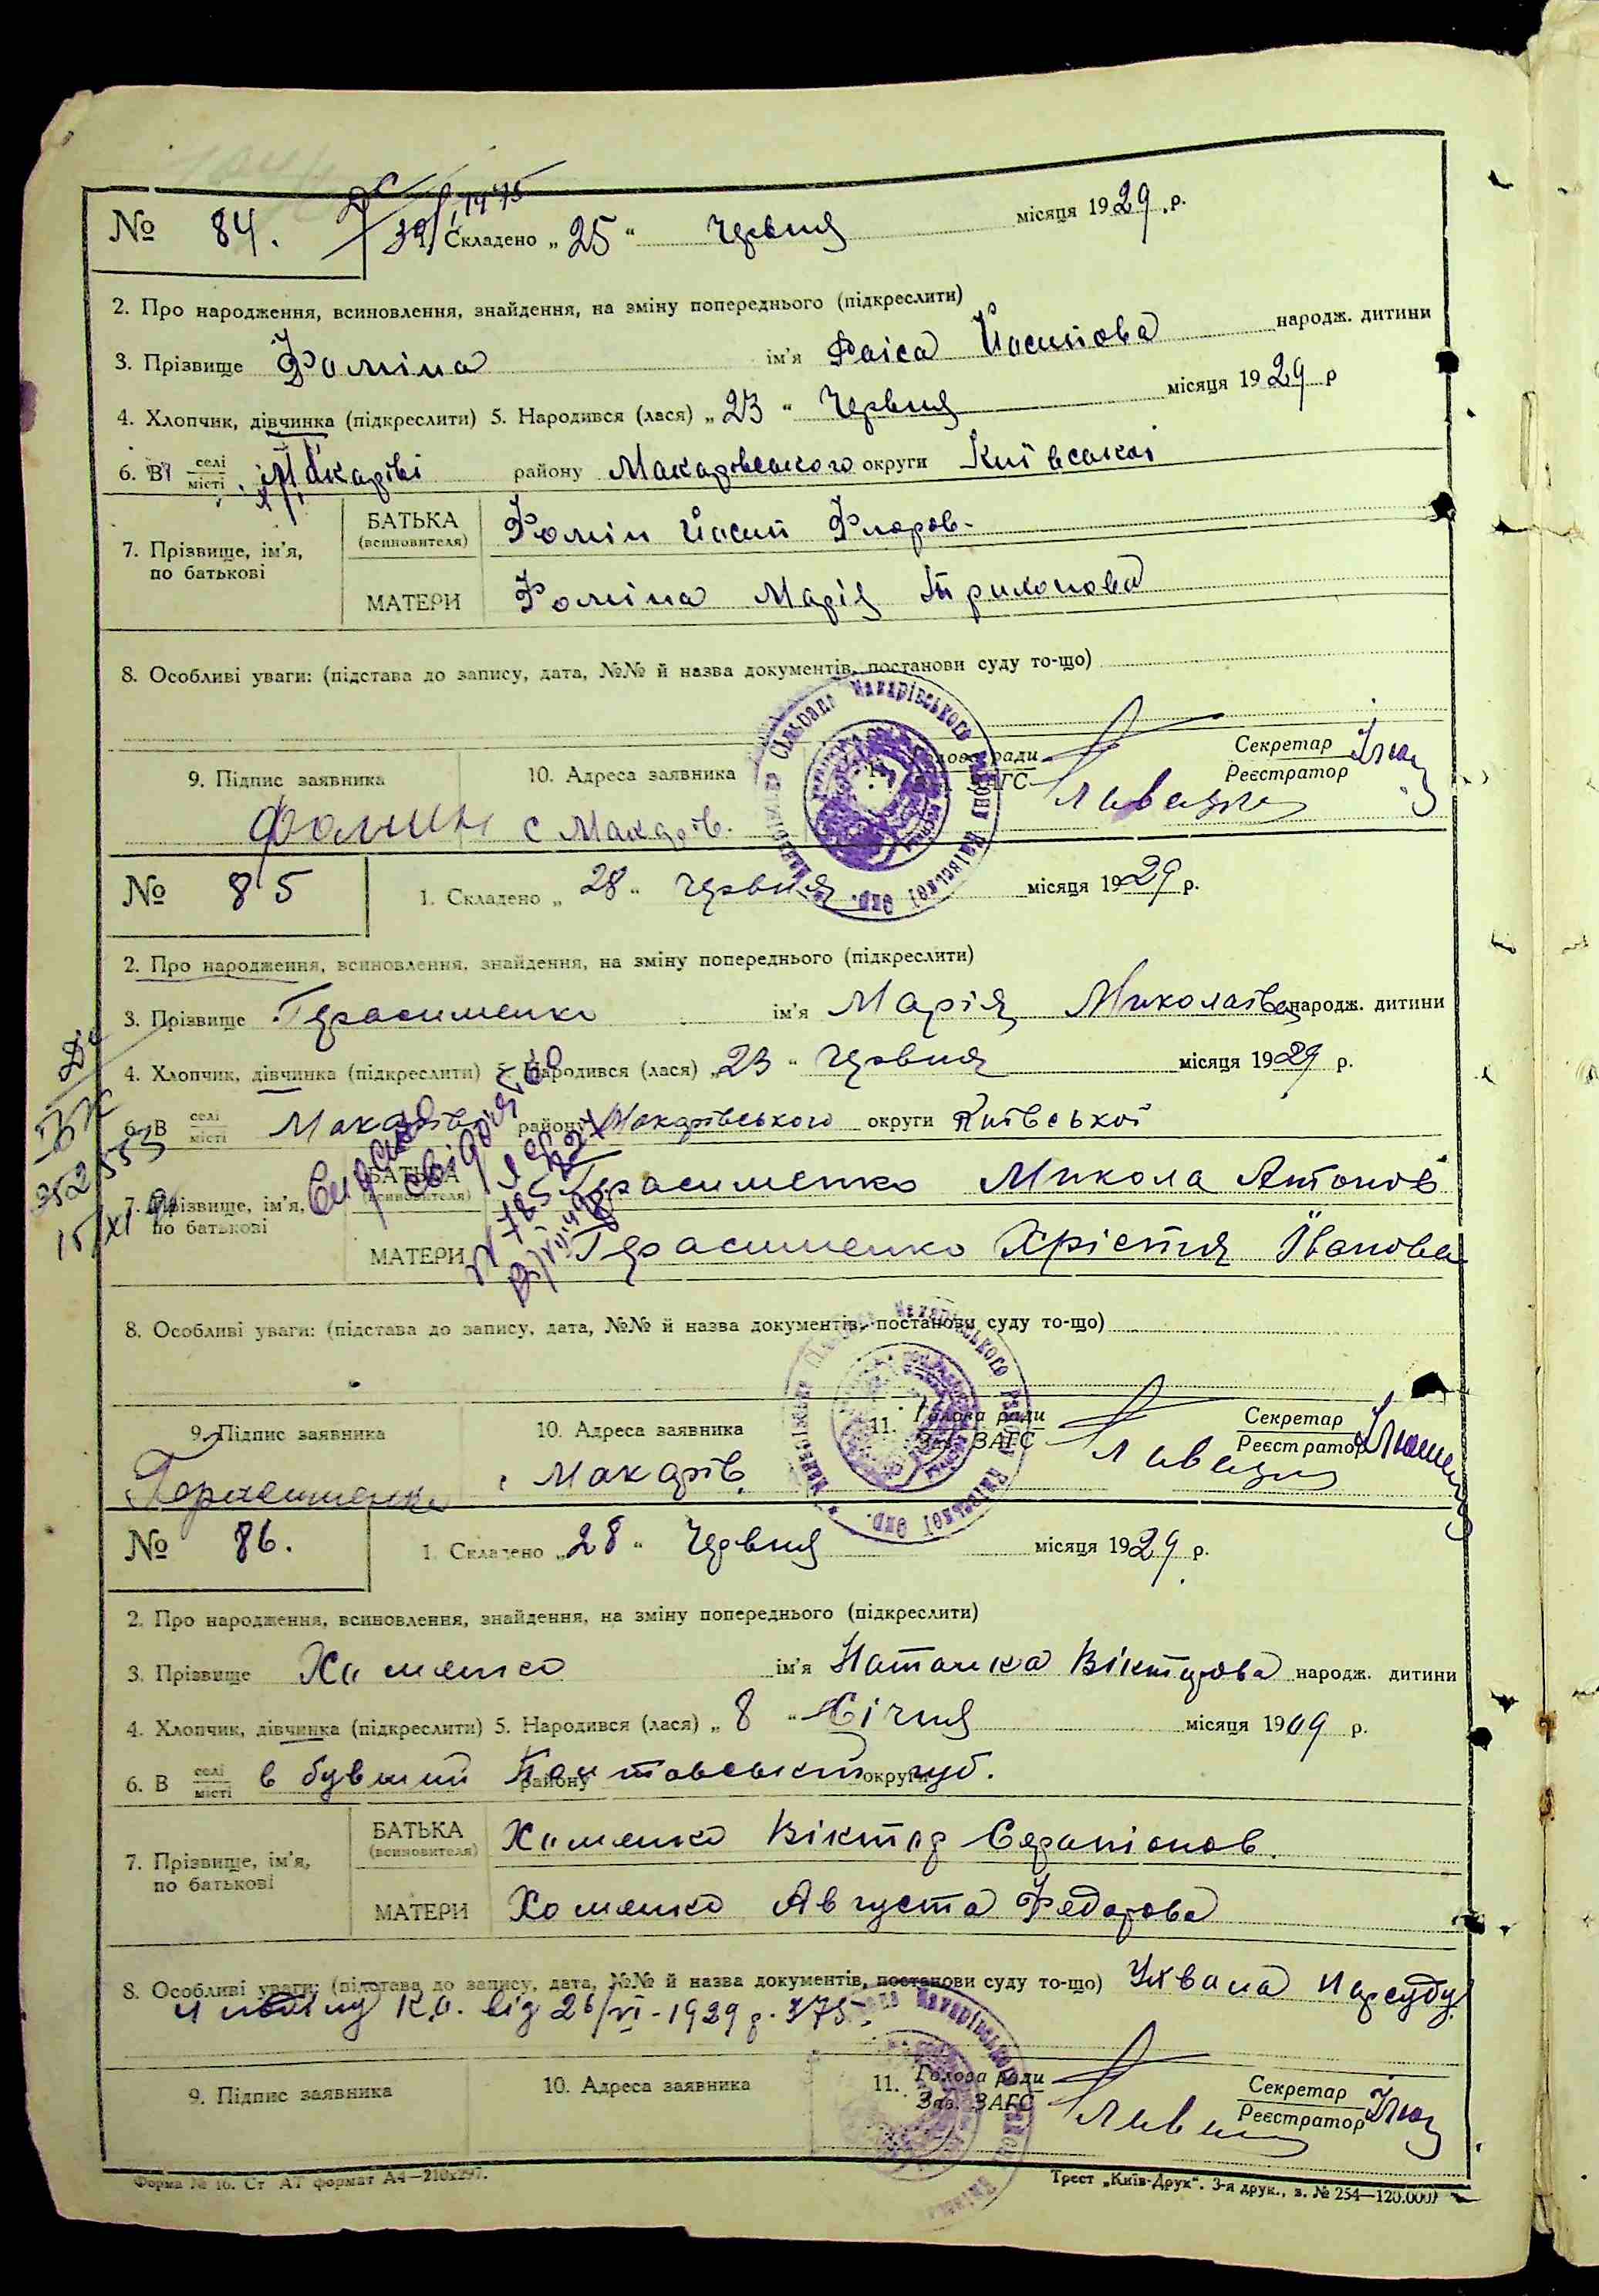 № 84. 1. Складено „25“ Червня місяця 1929 р.
2. Про народження, всиновлення, знайдення, на зміну попереднього (підкреслити)
3. Прізвище Фоміна ім'я Раіса Йосипова народж. дитини
4. Хлопчик, дівчинка (підкреслити) 5. Народився (лася) „23“ Червня місяця 1929 р
6. В селі місті Макарові району Макарівського округи Київської
7. Прізвище, ім'я, по батькові
БАТЬКА (всиновителя) Фомін Йосип Флоров-
МАТЕРИ Фоміна Марія Трихонова
8. Особливі уваги: (підстава до запису, дата, №№ й назва документів, постанови суду то-що)
9. Підпис заявника 10. Адреса заявника 11. Голова ради Зав. ЗАГС Секретар Реєстратор
Фомин с Макарів.
№ 85 1. Складено „28“ Червня місяця 1929 р.
2. Про народження, всиновлення, знайдення, на зміну попереднього (підкреслити)
3. Прізвище Герасименко ім'я Марія Миколаївна народж. дитини
4. Хлопчик, дівчинка (підкреслити) 5. Народився (лася) „23“ Червня місяця 1929 р.
6. В селі місті Макарів району Макарівського округи Київської
7. Прізвище, ім'я, по батькові
БАТЬКА (всиновителя) Герасименко Микола Антонов
МАТЕРИ Герасименко Хрістя Іванова
8. Особливі уваги: (підстава до запису, дата, №№ й назва документів, постанови суду то-що)
9. Підпис заявника 10. Адреса заявника 11. Голова ради Зав. ЗАГС Секретар Реєстратор
Герасименко Макарів.
№ 86. 1. Складено „28“ Червня місяця 1929 р.
2. Про народження, всиновлення, знайдення, на зміну попереднього (підкреслити)
3. Прізвище Хоменко ім'я Наталка Вікторова народж. дитини
4. Хлопчик, дівчинка (підкреслити) 5. Народився (лася) „8“ Січня місяця 1909 р.
6. В селі місті в бувший Полтавський губ. району округи
7. Прізвище, ім'я, по батькові
БАТЬКА (всиновителя) Хоменко Віктор Серапіонов.
МАТЕРИ Хоменко Августа Федорова
8. Особливі уваги: (підстава до запису, дата, №№ й назва документів, постанови суду то-що) Ухвала Нарсуду
К.О. від 26/VI-1929 р. 375.
9. Підпис заявника 10. Адреса заявника 11. Голова ради Зав. ЗАГС Секретар Реєстратор
Форма № 16. Ст АТ формат А4—210х297.
Трест „Київ-Друк“. 3-я друк., з. № 254—120.000